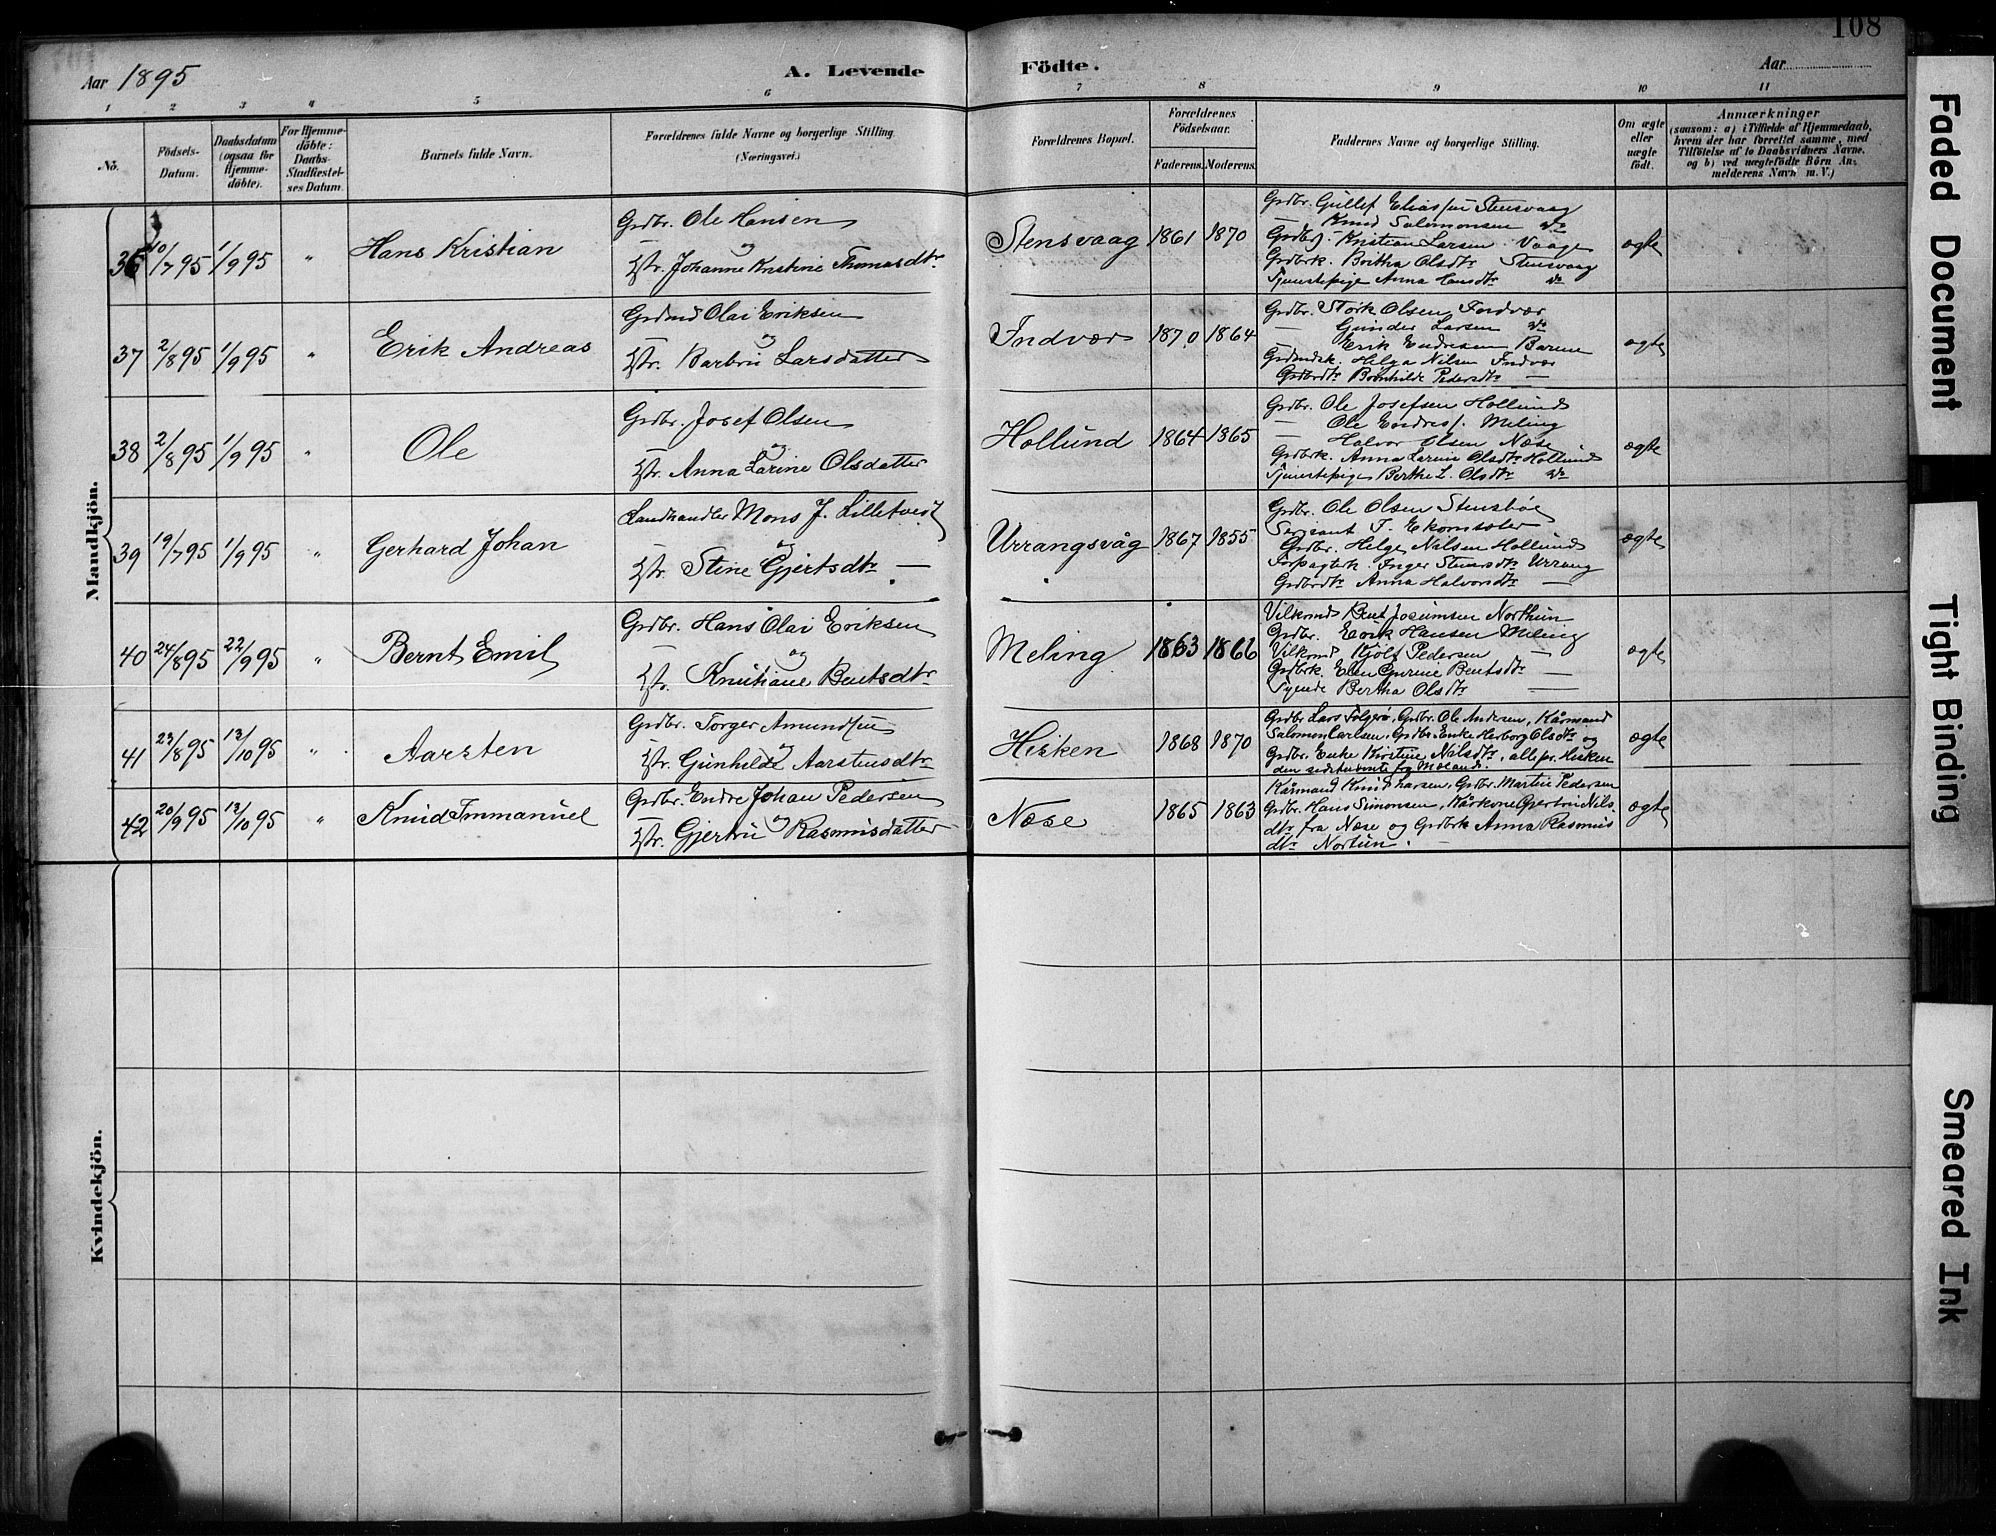 108
Aar 1895 A. Levende Födte. Aar
1 2 3 4 5 6 7 8 9 10 11
No. Födsels-Datum. Daabsdatum (ogsaa for Hjemmedöbte). For Hjemmedöbte: Daabs-Stadfæstelses Datum. Barnets fulde Navn. Forældrenes fulde Navne og borgerlige Stilling. (Næringsvei.) Forældrenes Bopæl. Forældrenes Födselsaar. Faderens. Moderens. Faddernes Navne og borgerlige Stilling. Om ægte eller uægte födt. Anmærkninger (saasom: a) i Tilfælde af Hjemmedaab, hvem der har forrettet samme, med Tilföielse af to Daabsvidners Navne, og b) ved uægtefödte Börn Anmelderens Navn m. V.)
Mandkjön.
36 10/7 95 1/9 95 " Hans Kristian Grdbr. Ole Hansen og Hstr. Johanne Kristine Thomasdtr. Stensvaag 1861 1870 ægte
Grdbr. Gullef Eliassen Stensvaag
Knud Salomonsen do
Grdbr. Kristian Larsen Vaage
Grdbrk. Britha Olsdtr Stensvaag
Tjenestepige Anna Hansdtr do
37 2/8 95 1/9 95 " Erik Andreas Grdmd Olai Eriksen og Hstr. Barbru Larsdatter Indvær 1870 1864 ægte
Grdbr. Stork Olsen Indvær
— Gunder Larsen do
— Erik Endresen Barene
Grdmdsk. Helga Nilsen Indvær
Grdbrdtr Brønhilde Pedersdtr —
38 2/8 95 1/9 95 " Ole Grdbr. Josef Olsen og Hstr. Anna Larine Olsdatter Hollund 1864 1865 ægte
Grdbr. Ole Josefsen Hollund
— Ole Endres. Meling
— Halvor Olsen Næse
Grdbrk. Anna Larine Olsdtr Hollund
Tjenestepige Berthe L. Olsdtr do
39 19/7 95 1/9 95 " Gerhard Johan Landhandler Mons J. Lilletvedt og Hstr. Stine Gjertsdtr — Urrangsvåg 1867 1855 ægte
Grdbr. Ole Olsen Stensbøe
Sergeant T. Ekornsæter
Grdbr. Helge Nilsen Hollund
Forpagterk. Inger Stensdtr Urrang
Grdbrdtr Anna Halvorsdtr —
40 24/8 95 22/9 95 " Bernt Emil Grdbr. Hans Olai Eriksen og Hstr. Knutiane Bentsdtr Meling 1863 1866 ægte
Vilkrmd Bent Jocumsen Northun
Grdbr. Erik Hansen Meling
Vilkrmd Kjølf Pedersen —
Grdbrk. Elen Gurine Bentsdtr —
Tyende Bertha Olsdtr —
41 23/8 95 13/10 95 " Aarsten Grdbr. Torger Amundsen og Hstr. Gunhilde Aarstensdtr Hisken 1868 1870 ægte
Grdbr Lars Folgerø, Grdbr. Ole Andersen, Kårmand
Salomon Carlsen, Grdbr. Enke Herborg Olsdtr og
Grdbr. Enke Kirstine Nilsdtr, alle fr. Hisken
den sidstnævnte fra Mæland.
42 20/9 95 13/10 95 " Knud Immanuel Grdbr. Endre Johan Pedersen og Hstr. Gjertru Rasmusdatter Næse 1865 1863 ægte
Kårmand Knud Larsen, Grdbr. Martin Pedersen
Grdbr. Hans Simonsen, Kårkone Gjertru Nils
dtr fra Næse og Grdbrk Anna Rasmus
dtr Nortun.
Kvindekjön.
Faded Document
Tight Binding
Smeared Ink